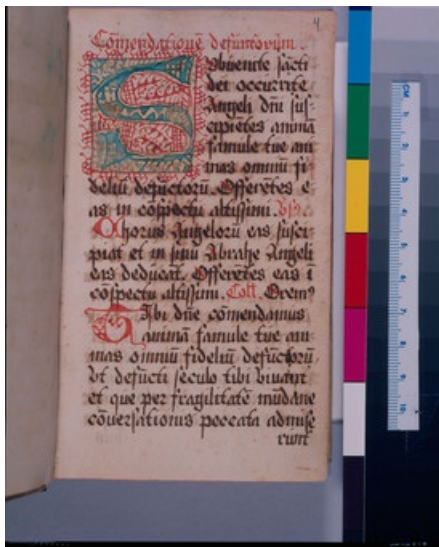 4
Comendatione defunctorum.
Subvenite sācti
dei occurrite
Angeli dm̄ sus-
cipiētes animā
famule tue ani
mas omniū fi
deliū defūctorū. Offerētes e
as in cōspectu altissimi.
Chorus Angelorū eas susci
piat et in sinu Abrahe Angeli
eas deducat. Offerētes eas i
cōspectu altissimi. Coll. Orem9
Tibi dn̄e cōmendamus
animā famule tue ani
mas omniū fidelium defūctorū
vt defūcti seculo tibi viuant
et que per fragilitatē mūdane
cōuersationis peccata admise
runt
CM 1 2 3 4 5 6 7 8 9 10